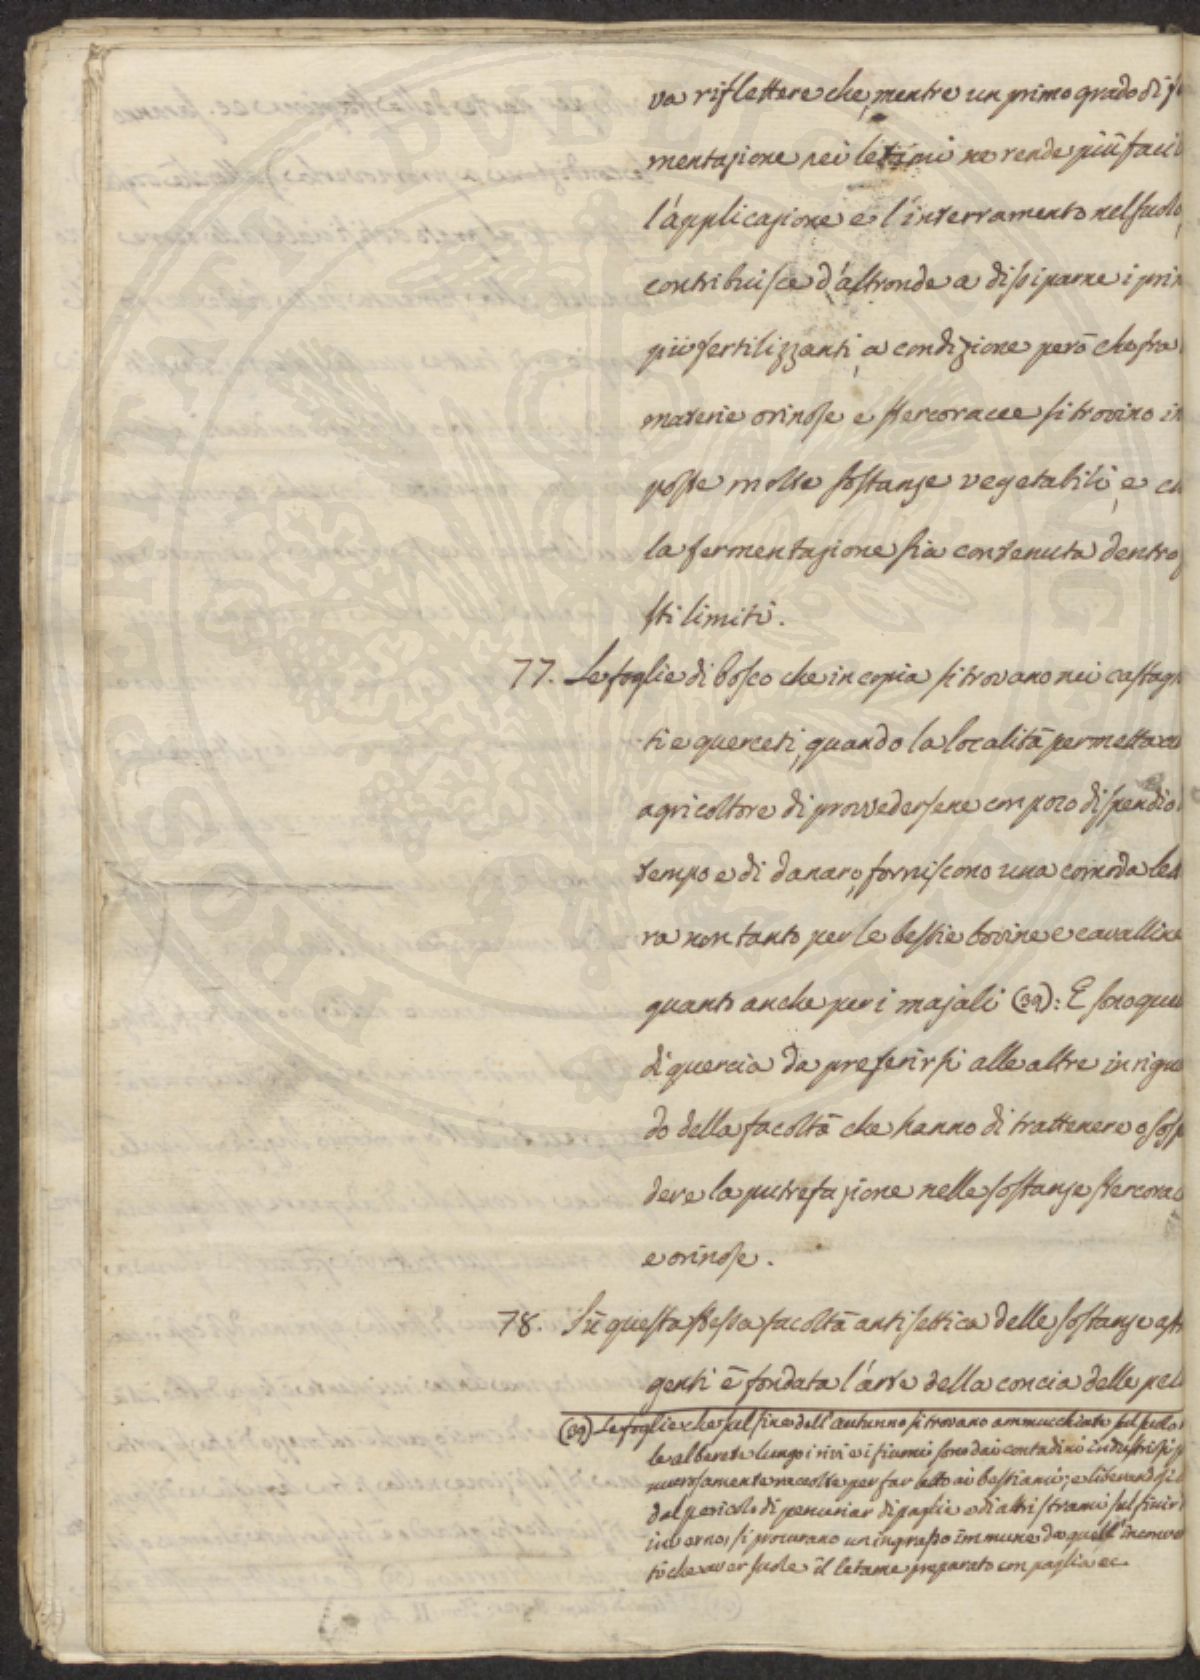 va riflettere che, mentre un primo grado di fe
mentazione nei letami ne rende più facil
l'applicazione e l'interramento nel suolo,
contribuisce d'altronde a dissiparne i prin
più fertilizzanti, a condizione però che fra
materie orinose e stercoracee si trovino in
poste molte sostanze vegetabili, e ch
la fermentazione sia contenuta dentro
sti limiti.
77. Le foglie di bosco che in copia si trovano nei castagn
ti e querceti, quando la località permetta
agricoltore di provvedersene con poco dispendio
tempo e di danaro, forniscono una comoda let
ra non tanto per le bestie bovine e cavalline
quanto anche per i majali (39): E sono que
di quercia da preferirsi alle altre in rigua
do della facoltà che hanno di trattenere o sosp
dere la putrefazione nelle sostanze stercorac
e orinose.
78. Sù questa stessa facoltà antisettica delle sostanze ast
genti è fondata l'arte della concia delle pel
(39) Le foglie che sul fine dell'autunno si trovano ammucchiate sul suolo
le alberete lungo i rivi e i fiumi sono dai contadini industriosi
murosamente raccolte per far letto ai bestiami; e liberandosi
dal pericolo di penuriar di paglie e di altri strami sul finir
inverno, si procurano un ingrasso immune da quell'inconve
ti che aver suole il letame preparato con paglia ec.
PROPRIETÀ
PUBLICA